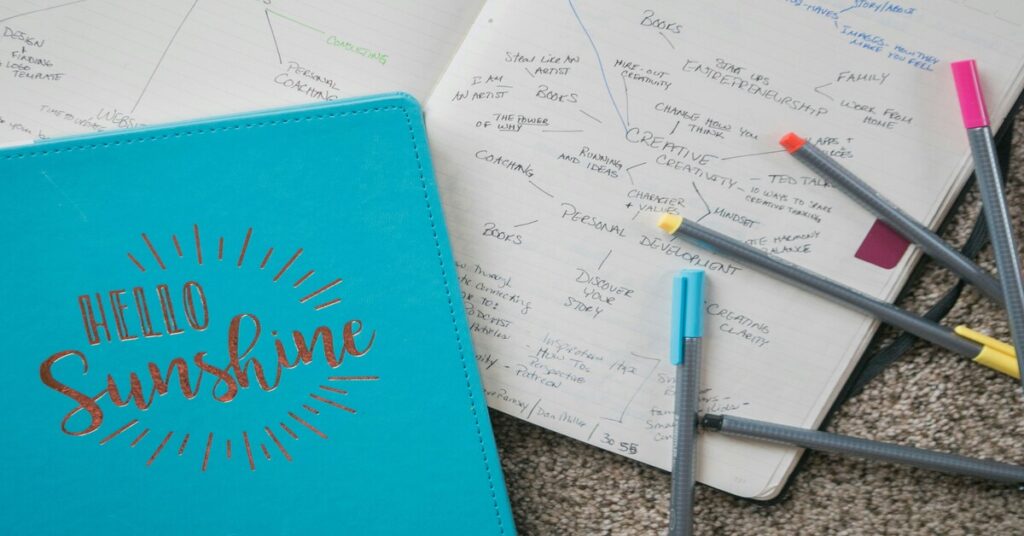 HELLO
Sunshine
DESIGN
FINDING
LOGO
TEMPLATE
CONSULTING
PERSONAL
COACHING
BOOKS
STORY/ABOUT
IMAGES - HOW THEY
MAKE YOU FEEL
Steal Like AN
ARTIST
I AM
AN ARTIST
BOOKS
THE POWER
OF WHY
COACHING
CREATIVITY
START UPS
ENTREPRENEURSHIP
FAMILY
WORK FROM
HOME
CHANGE HOW YOU
THINK
CREATIVE
CREATIVITY
RUNNING
AND IDEAS
APPS +
TED TALKS
10 WAYS TO
CREATIVE THINKING
CHARACTER
+ VALUES
MINDSET
HARMONY
BALANCE
PERSONAL DEVELOPMENT
BOOKS
DISCOVER
YOUR
STORY
CREATING
CLARITY
Through
Connecting
TO:
PODCAST
Articles
Inspiration
- How Tos
Perspective
- Patreon
30 55